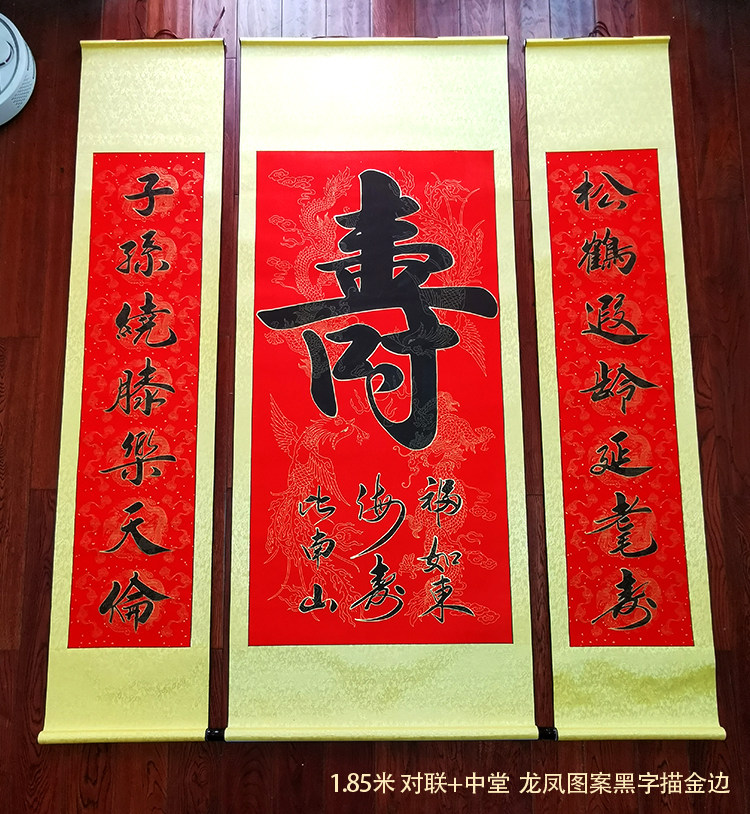 松鶴遐齡延耄寿
壽
福如東
海寿
比南山
子孫繞膝樂天倫
1.85米 对联+中堂 龙凤图案黑字描金边